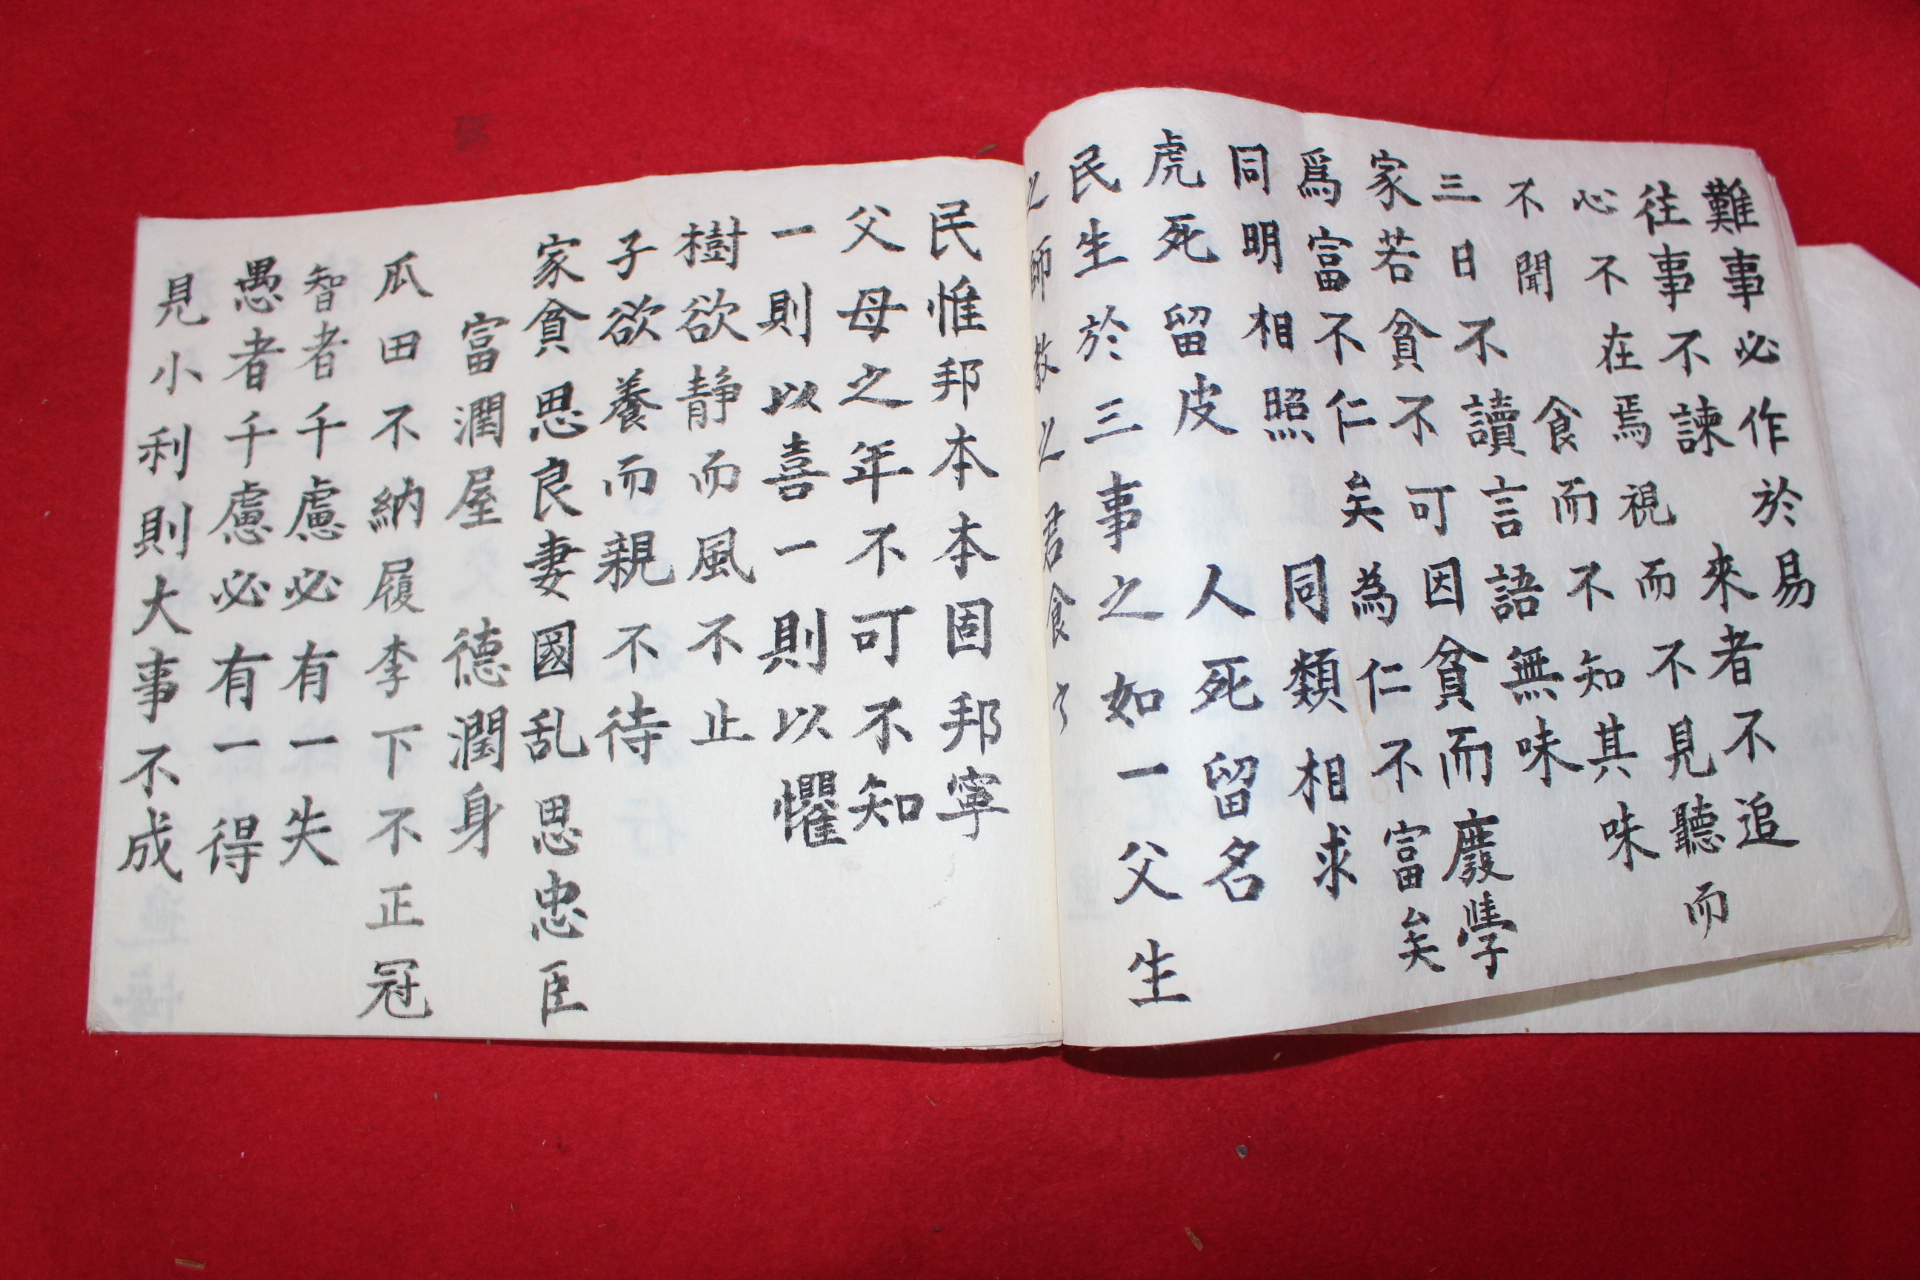 難事必作於易
往事不諫 來者不追
心不在焉 視而不見聽而
不聞 食而不知其味
三日不讀言語無味
家若貧不可因貧而廢學
爲富不仁矣為仁不富矣
同明相照 同類相求
虎死留皮 人死留名
民生於三事之如一父生
之師教之君食
民惟邦本本固邦寧
父母之年不可不知
一則以喜一則以懼
樹欲静而風不止
子欲養而親不待
家貧思良妻國乱思忠臣
富潤屋 德潤身
瓜田不納履李下不正冠
智者千慮必有一失
愚者千慮必有一得
見小利則大事不成